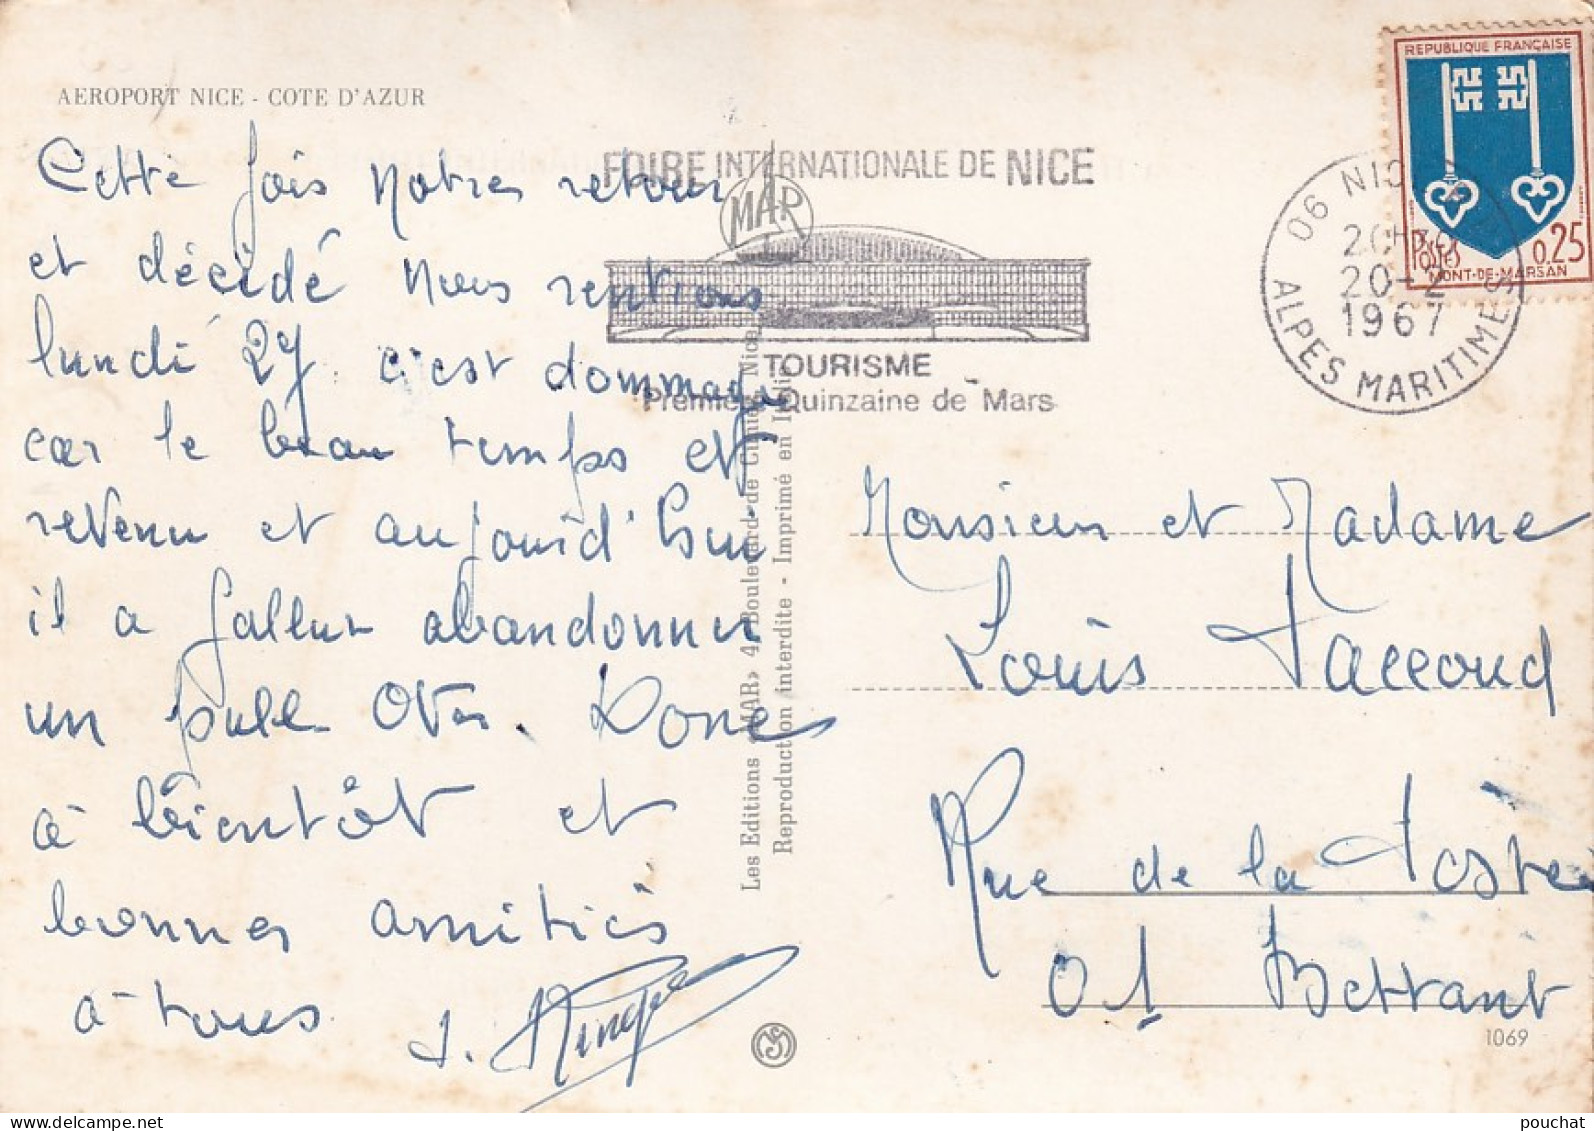 AEROPORT NICE - COTE D'AZUR
Cette fois notres retour
et décidé nous rentrons
lundi 27 c'est dommage
car le beau temps et
revenu et aujourd'hui
il a fallur abandonner
un pull over. Donc
à bientôt et
bonnes amitiés
à tous
FOIRE INTERNATIONALE DE NICE
MAR
TOURISME
Première Quinzaine de Mars
Les Editions «MAR» 4, Boulevard de Cimiez Nice
Reproduction interdite - Imprimé en Italie
REPUBLIQUE FRANÇAISE
POSTES 0,25
MONT-DE-MARSAN
06 NICE
20-2
1967
ALPES MARITIMES
Monsieur et Madame
Louis Taccoud
Rue de la
01
1069
pouchat